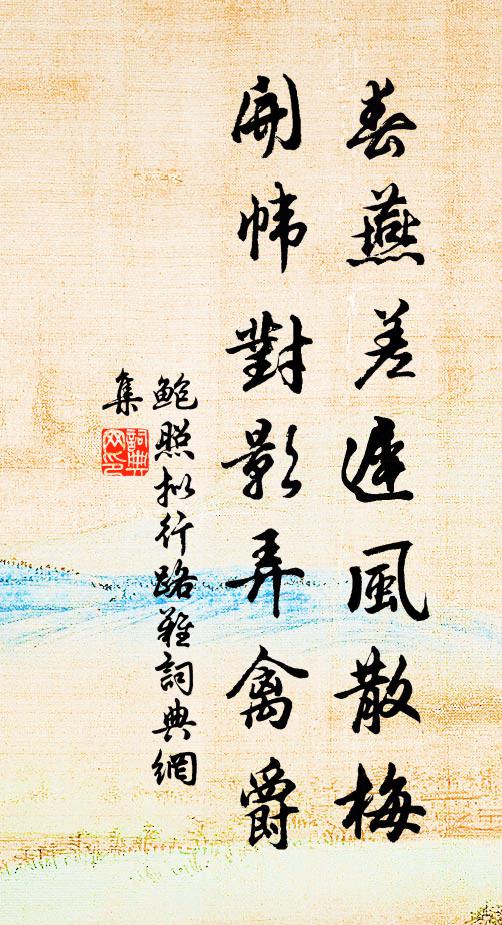 春燕差遲風散梅
開幃對影弄禽爵
鮑照拟行路難詞典網
集
詞典
网印